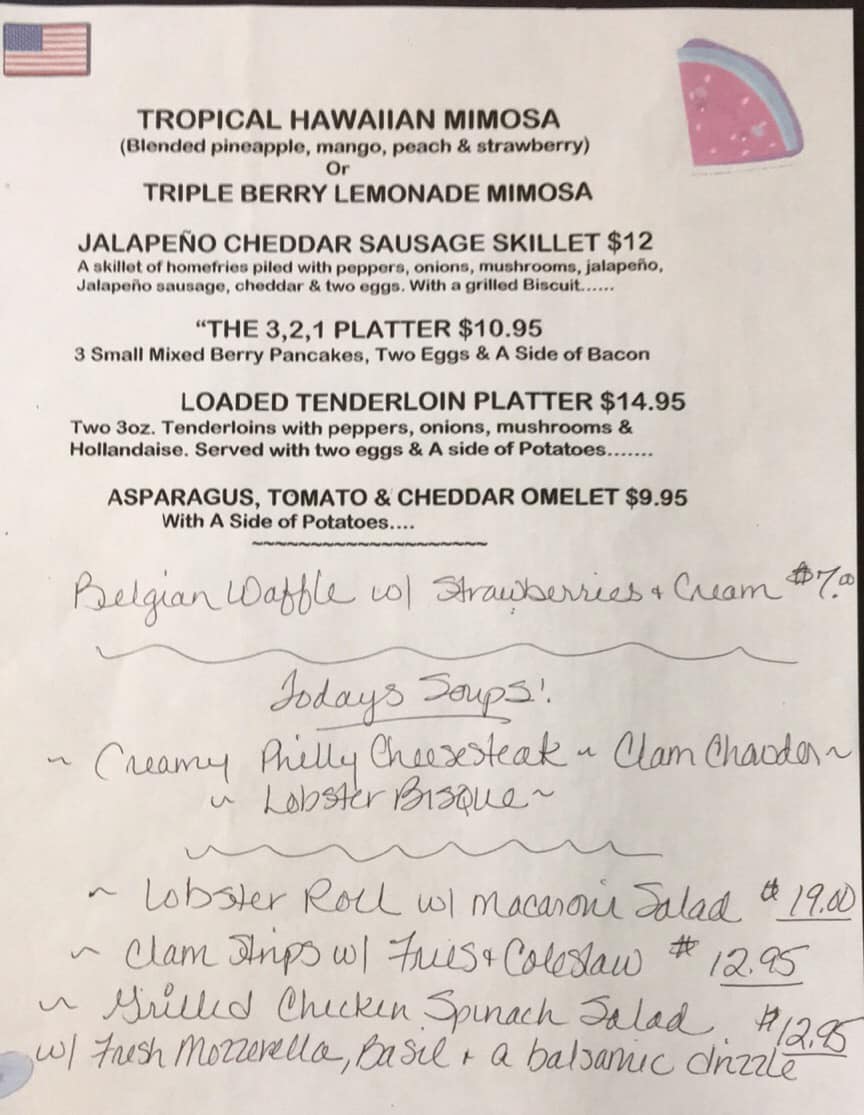 TROPICAL HAWAIIAN MIMOSA
(Blended pineapple, mango, peach & strawberry)
Or
TRIPLE BERRY LEMONADE MIMOSA
JALAPEÑO CHEDDAR SAUSAGE SKILLET $12
A skillet of homefries piled with peppers, onions, mushrooms, jalapeño,
Jalapeño sausage, cheddar & two eggs. With a grilled Biscuit......
“THE 3,2,1 PLATTER $10.95
3 Small Mixed Berry Pancakes, Two Eggs & A Side of Bacon
LOADED TENDERLOIN PLATTER $14.95
Two 3oz. Tenderloins with peppers, onions, mushrooms &
Hollandaise. Served with two eggs & A side of Potatoes.......
ASPARAGUS, TOMATO & CHEDDAR OMELET $9.95
With A Side of Potatoes....
~~~~~~~~~~~~~~~~~~~~
Belgian Waffle w/ Strawberries & Cream $7.00
Todays Soups!
~ Creamy Philly Cheesesteak ~ Clam Chowder ~
~ Lobster Bisque ~
~ Lobster Roll w/ Macaroni Salad $19.00
~ Clam Strips w/ Fries & Coleslaw $12.95
~ Grilled Chicken Spinach Salad $12.95
w/ Fresh Mozzerella, Basil & a balsamic drizzle